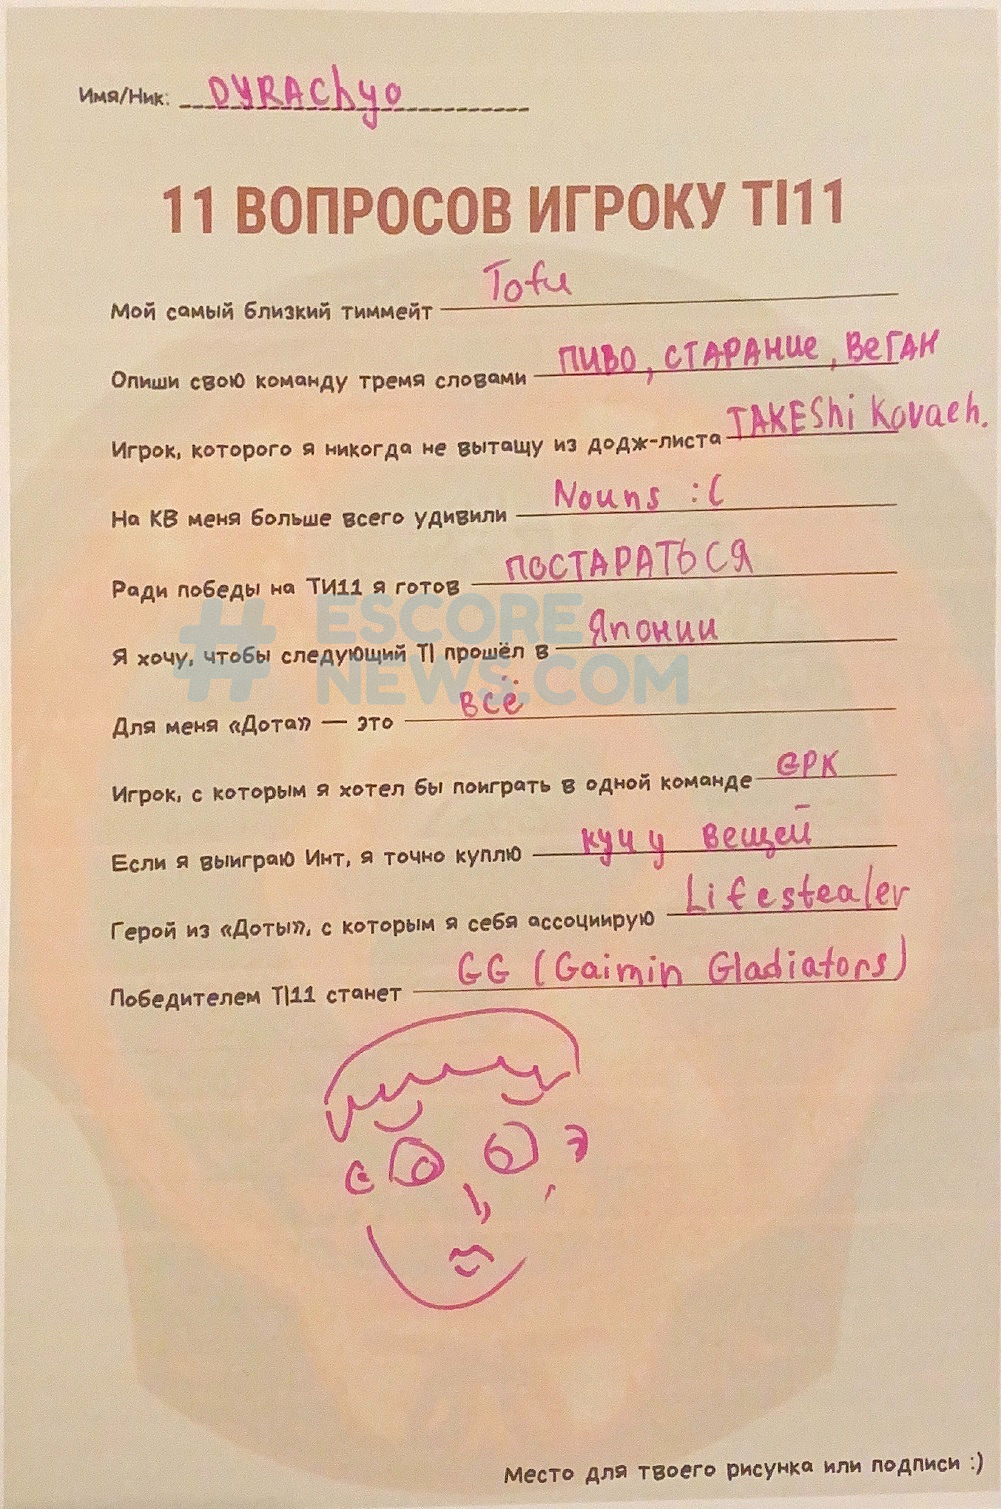 Имя/Ник: DYRAChyo
11 ВОПРОСОВ ИГРОКУ TI11
Мой самый близкий тиммейт Tofu
Опиши свою команду тремя словами ПИВО, СТАРАНИЕ, ВЕГАН
Игрок, которого я никогда не вытащу из додж-листа TAKEShi Kovach.
На КВ меня больше всего удивили Nouns :(
Ради победы на ТИ11 я готов ПОСТАРАТЬСЯ
Я хочу, чтобы следующий TI прошёл в Японии
#ESCORE
NEWS.COM
Для меня «Дота» — это всё
Игрок, с которым я хотел бы поиграть в одной команде ЕРК
Если я выиграю Инт, я точно куплю кучу вещей
Герой из «Доты», с которым я себя ассоциирую Lifestealer
Победителем TI11 станет GG (Gaimin Gladiators)
Место для твоего рисунка или подписи :)